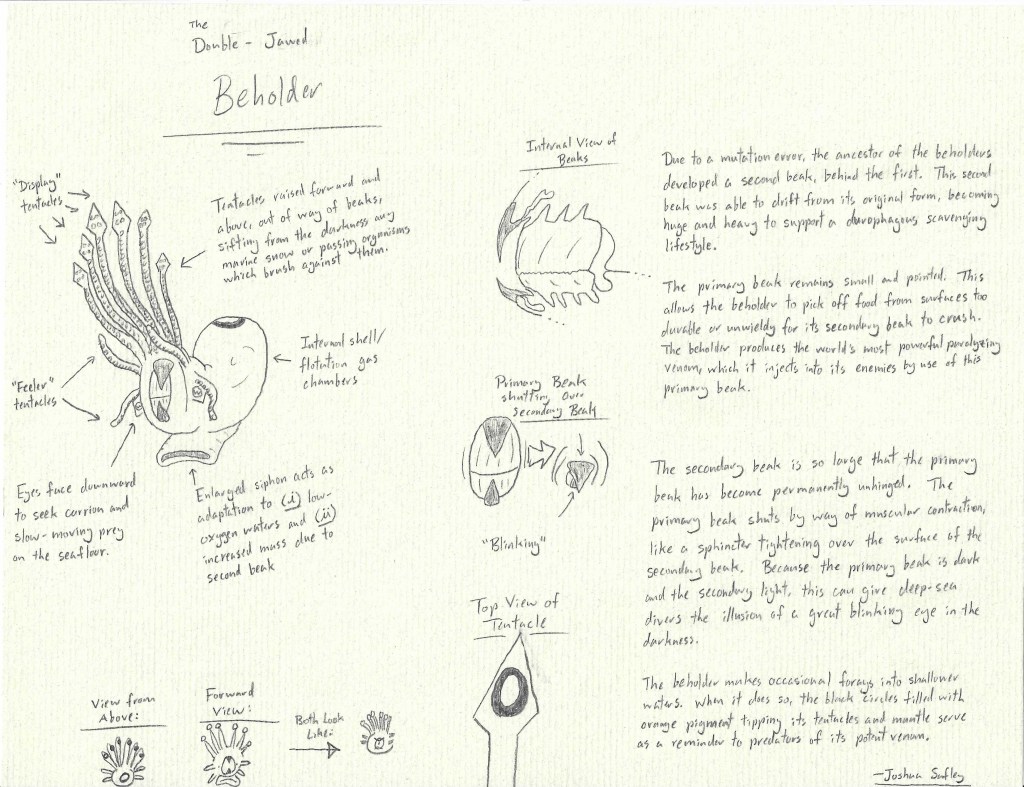 The
Double-Jawed
Beholder
"Display"
tentacles
Tentacles raised forward and
above, out of way of beaks,
sifting from the darkness any
marine snow or passing organisms
which brush against them.
Internal shell/
flotation gas
chambers
"Feeler"
tentacles
Eyes face downward
to seek carrion and
slow-moving prey
on the seafloor.
Enlarged siphon acts as
adaptation to (i) low-
oxygen waters and (ii)
increased mass due to
second beak
View from
Above:
Forward
View:
Both Look
Like:
Internal View of
Beaks
Primary Beak
shutting Over
Secondary Beak
"Blinking"
Top View of
Tentacle
Due to a mutation error, the ancestor of the beholders
developed a second beak, behind the first. This second
beak was able to drift from its original form, becoming
huge and heavy to support a durophagous scavenging
lifestyle.
The primary beak remains small and pointed. This
allows the beholder to pick off food from surfaces too
durable or unwieldy for its secondary beak to crush.
The beholder produces the world's most powerful paralyzing
venom, which it injects into its enemies by use of this
primary beak.
The secondary beak is so large that the primary
beak has become permanently unhinged. The
primary beak shuts by way of muscular contraction,
like a sphincter tightening over the surface of the
secondary beak. Because the primary beak is dark
and the secondary light, this can give deep-sea
divers the illusion of a great blinking eye in the
darkness.
The beholder makes occasional forays into shallower
waters. When it does so, the black circles filled with
orange pigment tipping its tentacles and mantle serve
as a reminder to predators of its potent venom.
—Joshua